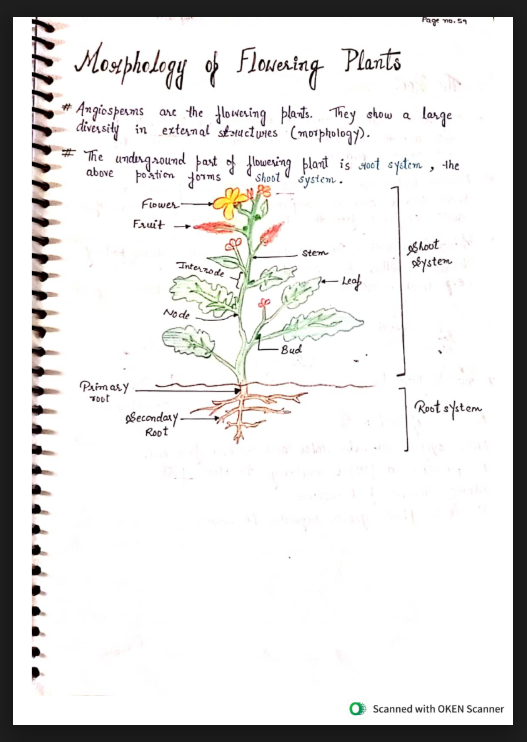 Page no. 59
Morphology of Flowering Plants
# Angiosperms are the flowering plants. They show a large
diversity in external structures (morphology).
# The underground part of flowering plant is root system, the
above portion forms shoot system.
Flower
Fruit
Stem
Shoot
System
Internode
Leaf
Node
Bud
Primary
root
Root system
Secondary
Root
Scanned with OKEN Scanner